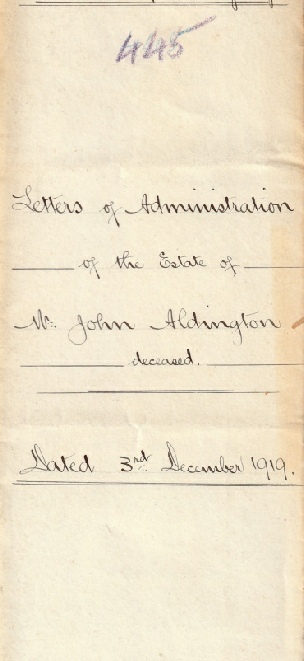 445
Letters of Administration
of the Estate of
Mr. John Aldington
deceased.
Dated 3rd December 1919.